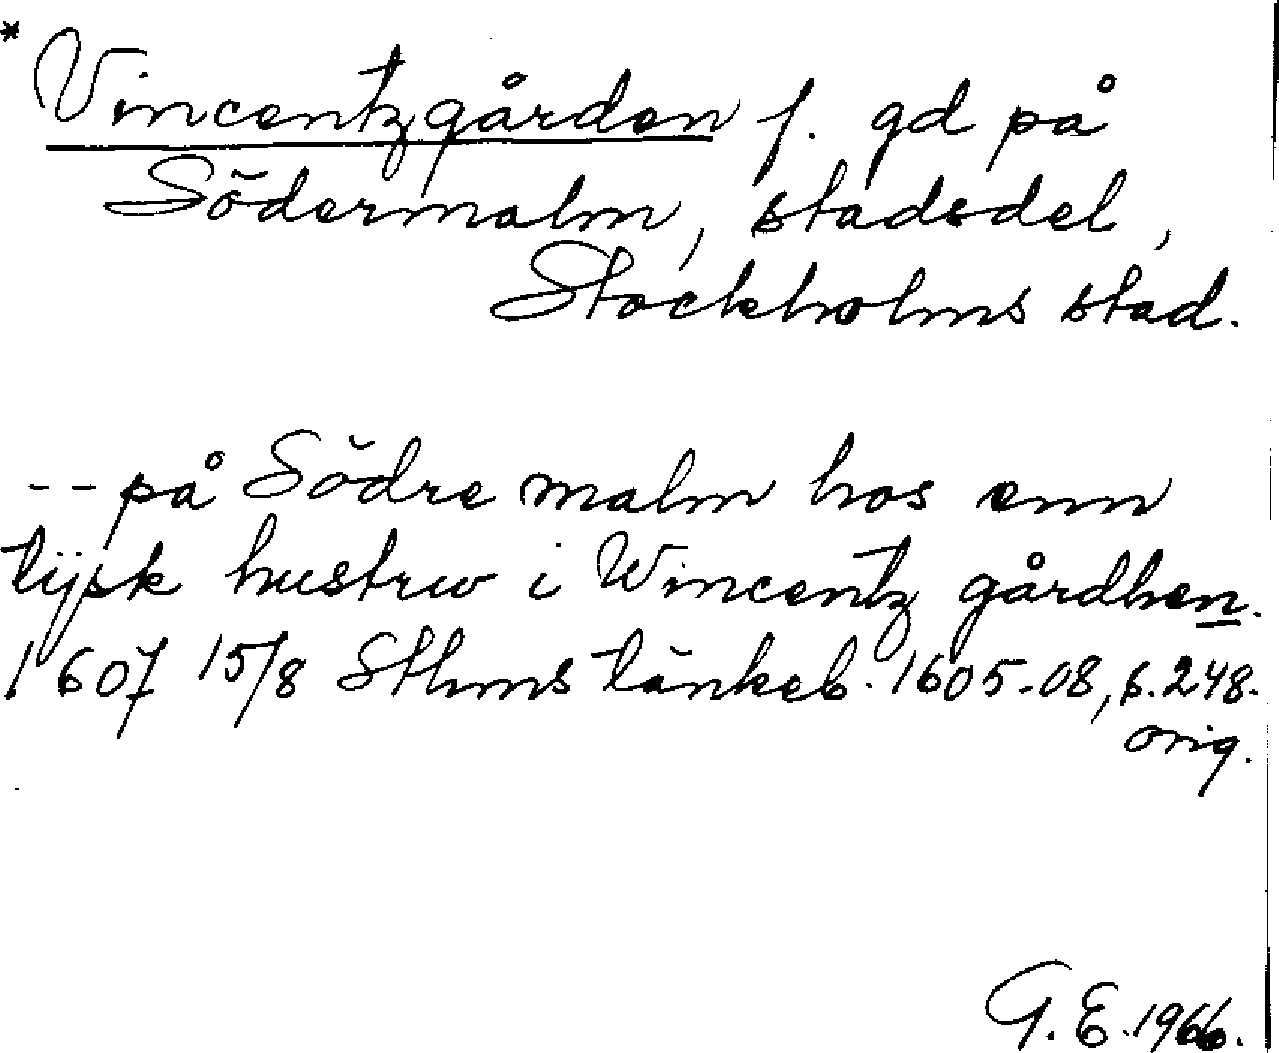 *Vincentzgården f. gd på
Södermalm, stadsdel,
Stockholms stad.
-- på Södre malm hos enn
tÿsk hustrw i Wincentz gårdhen.
1607 15/8 Sthms tänkeb. 1605-08, s. 248.
orig.
G. E. 1966.